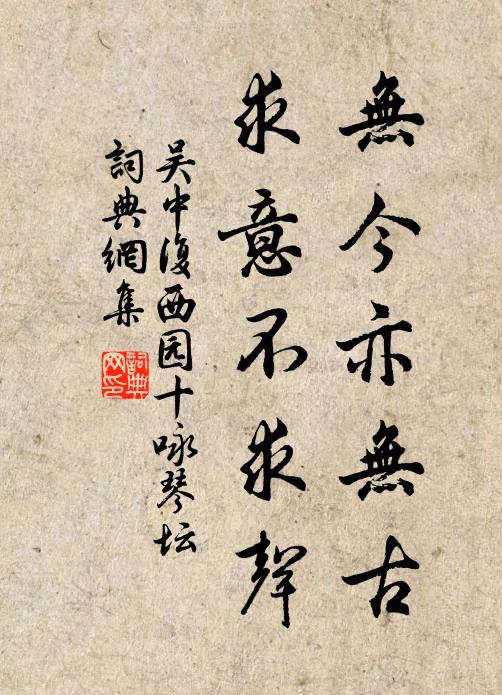 無今亦無古
求意不求聲
吴中復西园十咏琴坛
詞典網集
詞典
网印